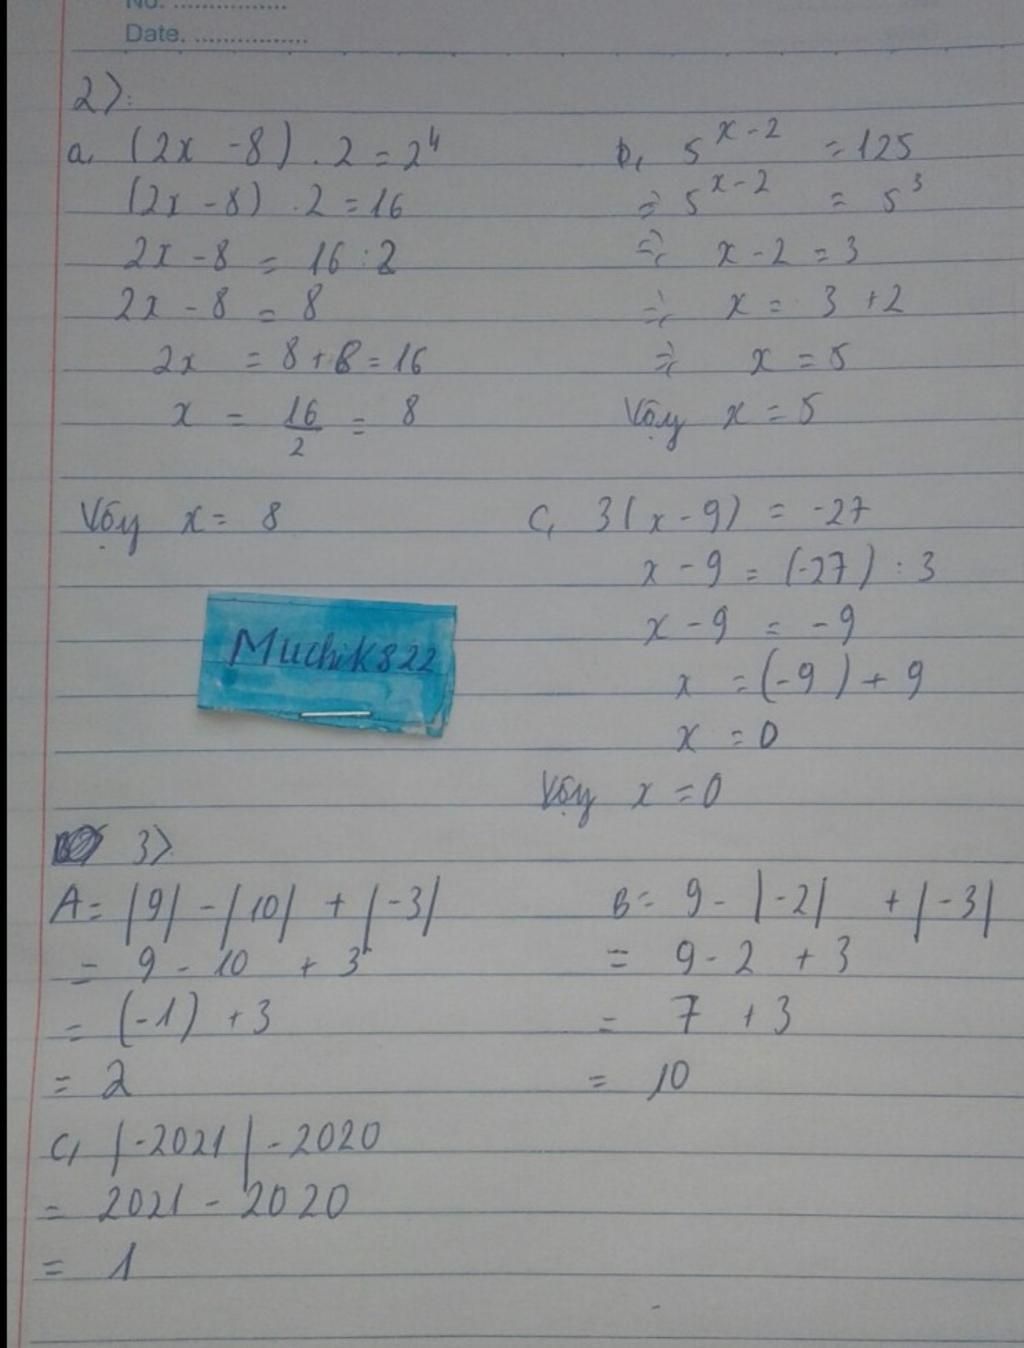 No. ................
Date. ................
2>:
a, (2x - 8) . 2 = 2⁴
(2x - 8) . 2 = 16
2x - 8 = 16 : 2
2x - 8 = 8
2x = 8 + 8 = 16
x = 16/2 = 8
Vậy x = 8
b, 5^(x-2) = 125
=> 5^(x-2) = 5³
=> x - 2 = 3
=> x = 3 + 2
=> x = 5
Vậy x = 5
C, 3(x - 9) = -27
x - 9 = (-27) : 3
x - 9 = -9
x = (-9) + 9
x = 0
Vậy x = 0
Muchik822
3>
A = |9| - |10| + |-3|
= 9 - 10 + 3
= (-1) + 3
= 2
B = 9 - |-2| + |-3|
= 9 - 2 + 3
= 7 + 3
= 10
C, |-2021| - 2020
= 2021 - 2020
= 1